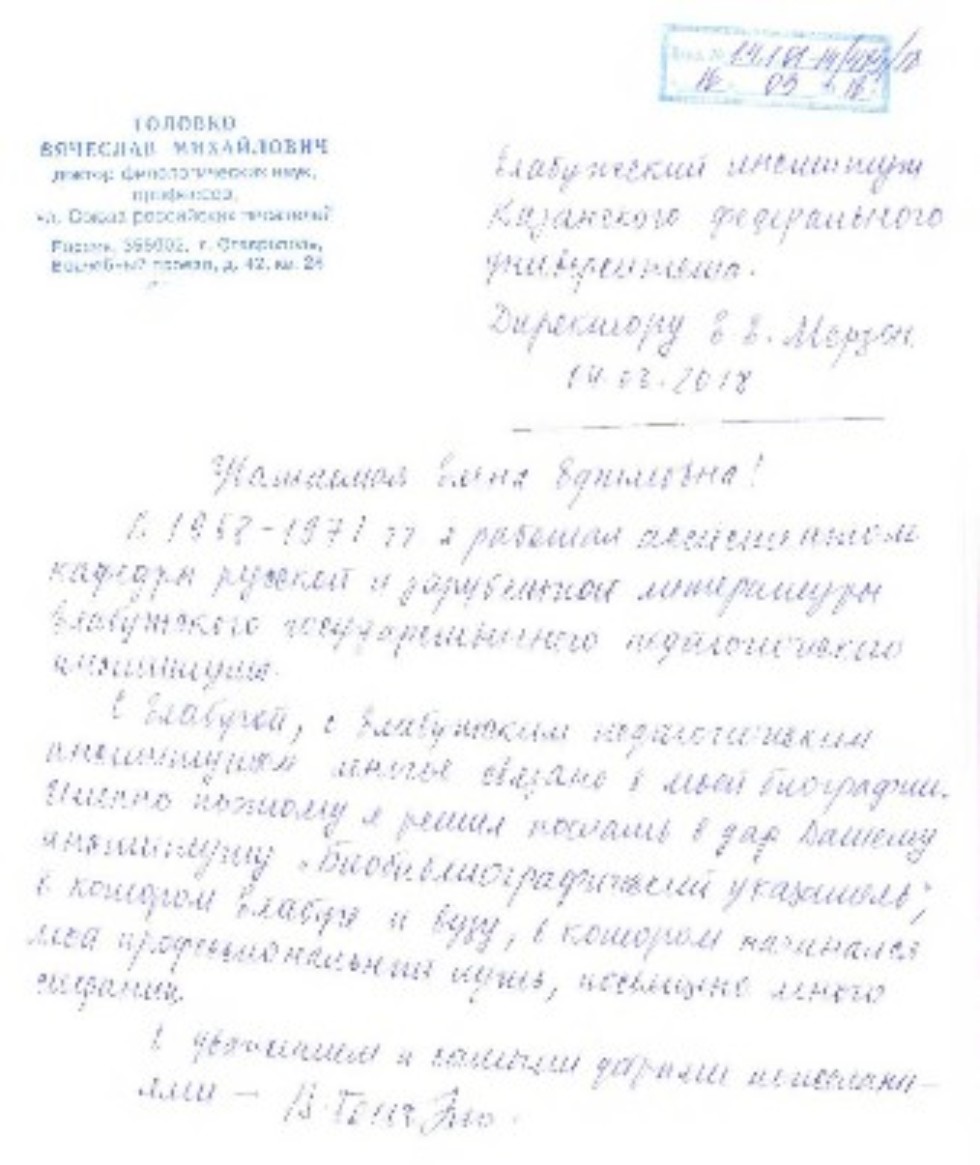 ГОЛОВКО
ВЯЧЕСЛАВ МИХАЙЛОВИЧ
доктор филологических наук,
профессор,
чл. Союза российских писателей
Россия, г. Ставрополь,
д. 42, кв. 28
16 03 18
Елабужский институт
Казанского федерального
университета.
Директору Е.Е. Мерзон
14.03.2018
Уважаемая Елена Ефимовна!
В 1968-1971 гг я работал ассистентом
кафедры русской и зарубежной литературы
Елабужского государственного педагогического
института.
С Елабугой, с Елабужским педагогическим
институтом многое связано в моей биографии.
Именно поэтому я решил послать в дар Вашему
институту „Биобиблиографический указатель",
в котором Елабуге и вузу, в котором начинался
мой профессиональный путь, посвящено много
страниц.
С уважением и самыми добрыми пожелани-
ями –